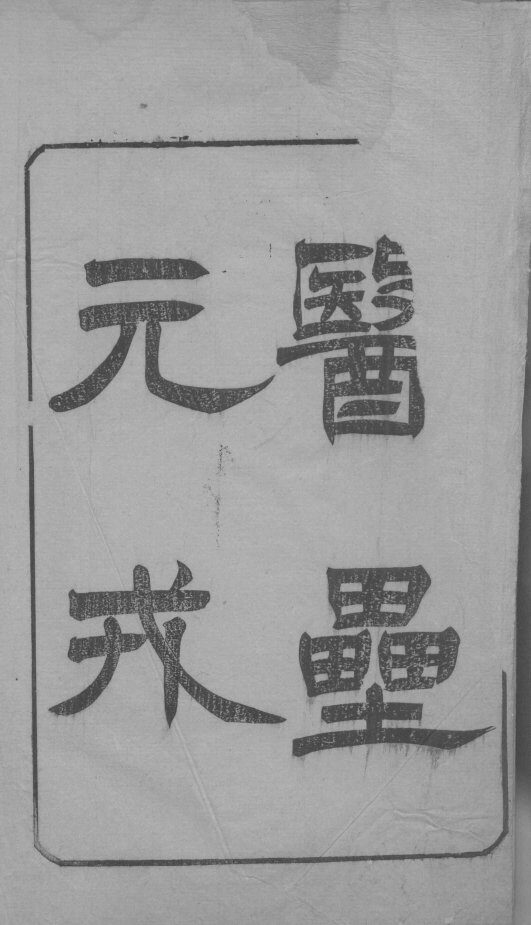 醫壘
元戎